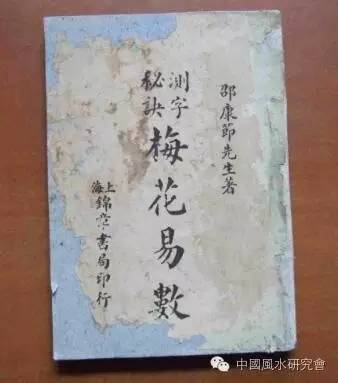 邵康節先生著
測字
秘訣
梅花易數
上海
錦章書局印行
中國風水研究會